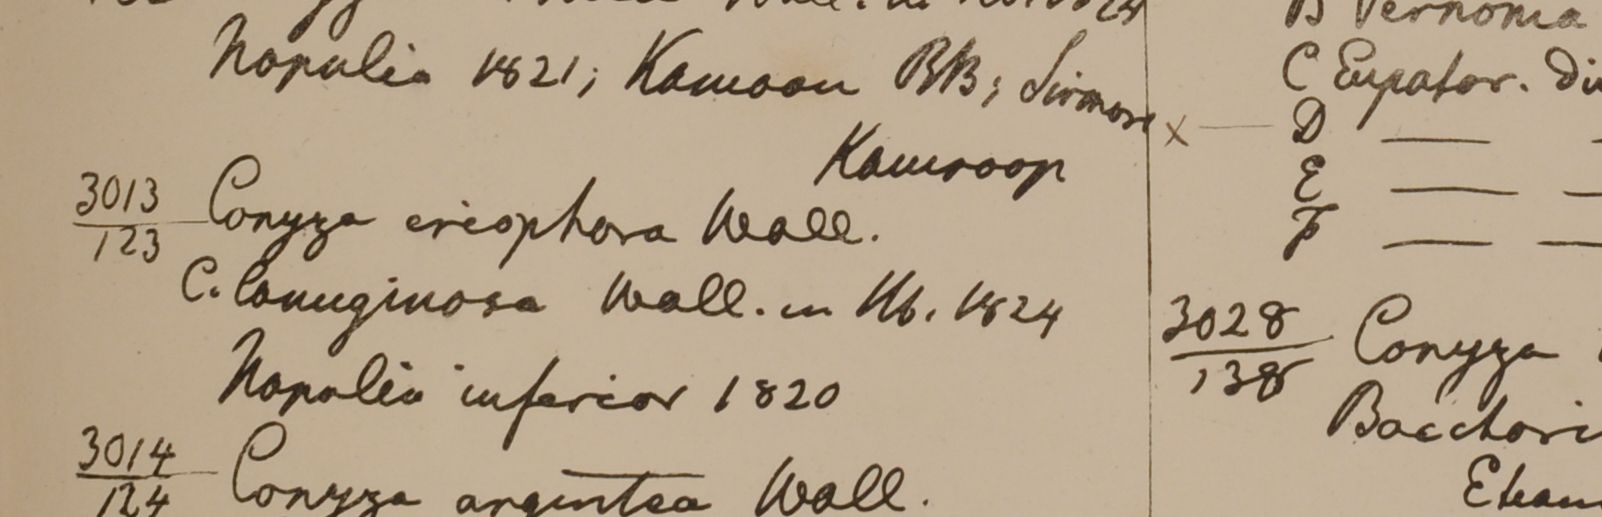 Wall. in
Napalia 1821; Kamaon BB; Sirmore
Kamroop
3013/123 Conyza eriophora Wall.
C. lanuginosa Wall. in Hb. 1824
Napalia inferior 1820
3014/124 Conyza argentea Wall.
B Vernonia
C Eupator. Di
x — D — —
E — —
F — —
3028/138 Conyza
Bacchari